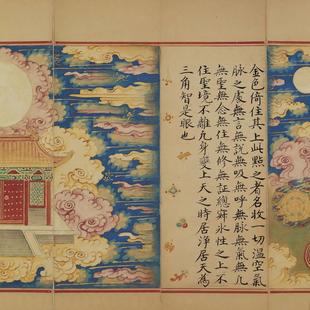 金色倚住其上此點之者名收一切溫空氣
脉之處無言無說無吸無呼無脉無氣無凡
無聖無念無住無修無証總寂永性之上不
住聖境不離凡身變上天之時居淨居天為
三角智是眼也